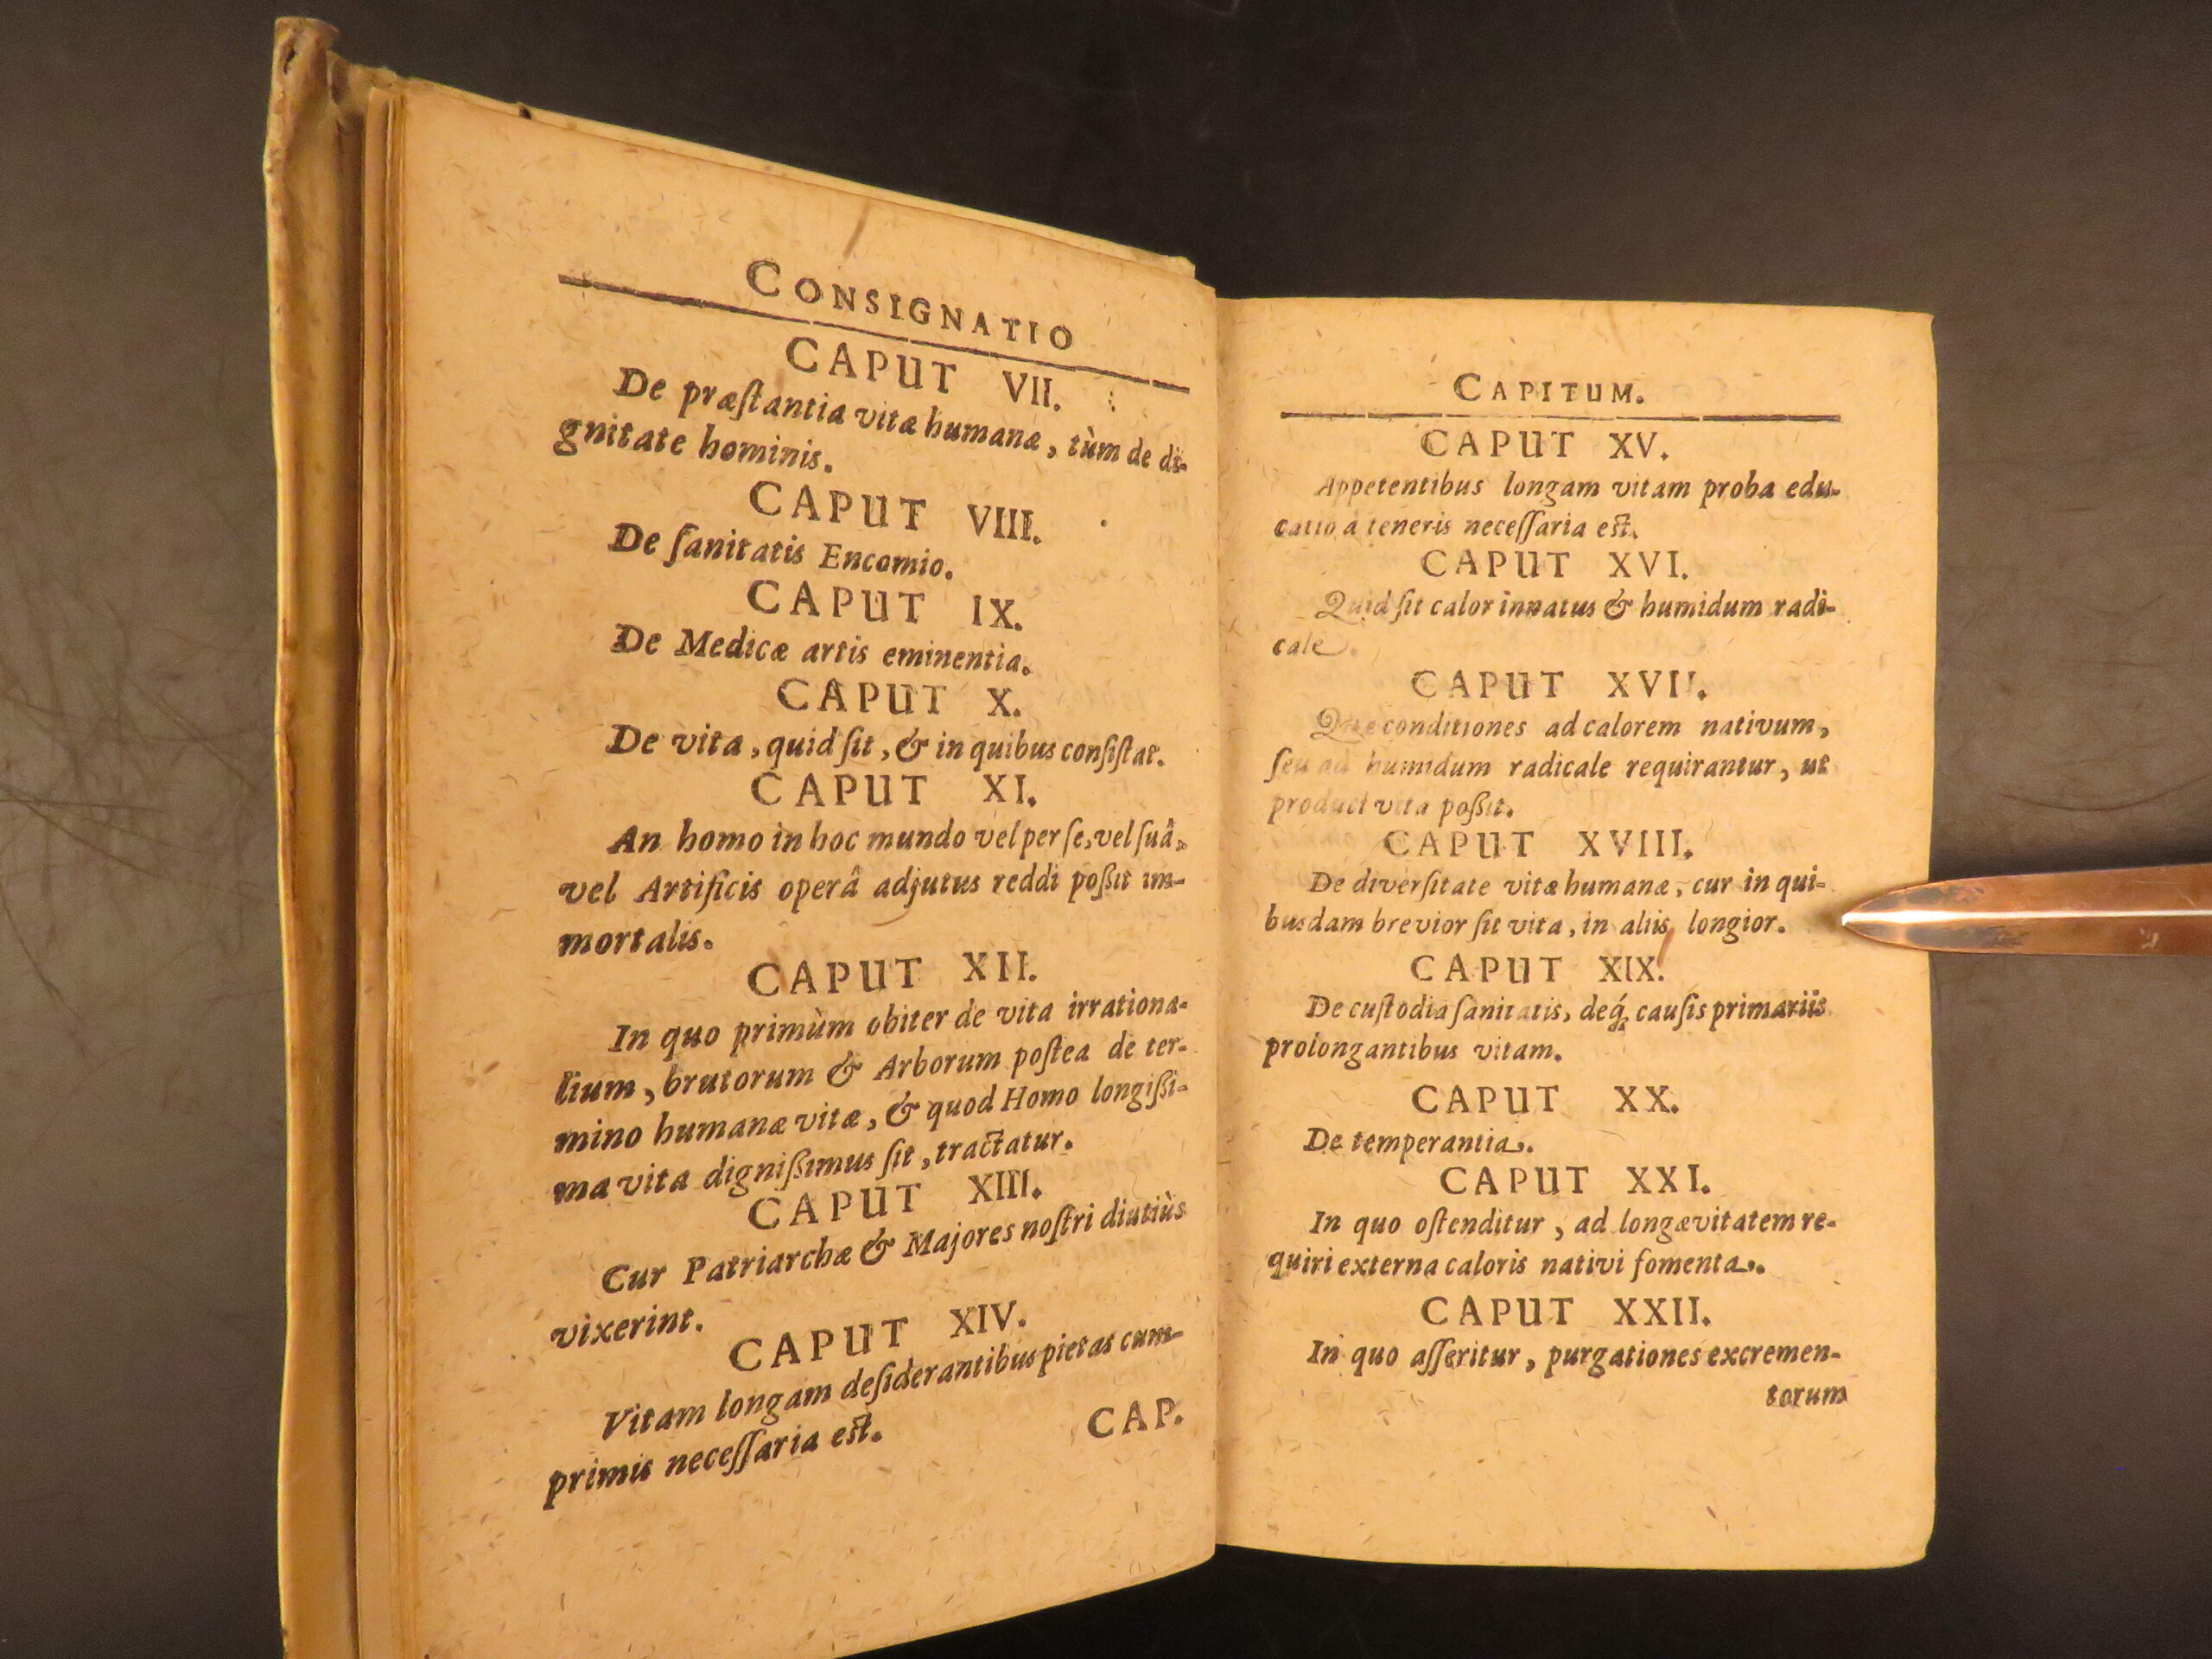 CONSIGNATIO
CAPUT VII.
De præſtantia vitæ humanæ, tùm de di-
gnitate hominis.
CAPUT VIII.
De ſanitatis Encomio.
CAPUT IX.
De Medicæ artis eminentia.
CAPUT X.
De vita, quid ſit, & in quibus conſiſtat.
CAPUT XI.
An homo in hoc mundo vel per ſe, vel ſuâ,
vel Artificis operâ adjutus reddi poßit im-
mortalis.
CAPUT XII.
In quo primùm obiter de vita irrationa-
lium, brutorum & Arborum poſtea de ter-
mino humanæ vitæ, & quod Homo longißi-
ma vita dignißimus ſit, tractatur.
CAPUT XIII.
Cur Patriarchæ & Majores noſtri diutiùs
vixerint.
CAPUT XIV.
Vitam longam deſiderantibus pietas cum-
primis neceſſaria eſt.
CAP.
CAPITUM.
CAPUT XV.
Appetentibus longam vitam proba edu-
catio à teneris neceſſaria eſt.
CAPUT XVI.
Quid ſit calor innatus & humidum radi-
cale.
CAPUT XVII.
Quæ conditiones ad calorem nativum,
ſeu ad humidum radicale requirantur, ut
produci vita poßit.
CAPUT XVIII.
De diverſitate vitæ humanæ, cur in qui-
busdam brevior ſit vita, in aliis longior.
CAPUT XIX.
De cuſtodia ſanitatis, deq́; cauſis primariis
prolongantibus vitam.
CAPUT XX.
De temperantia.
CAPUT XXI.
In quo oſtenditur, ad longævitatem re-
quiri externa caloris nativi fomenta.
CAPUT XXII.
In quo aſſeritur, purgationes excremen-
torum